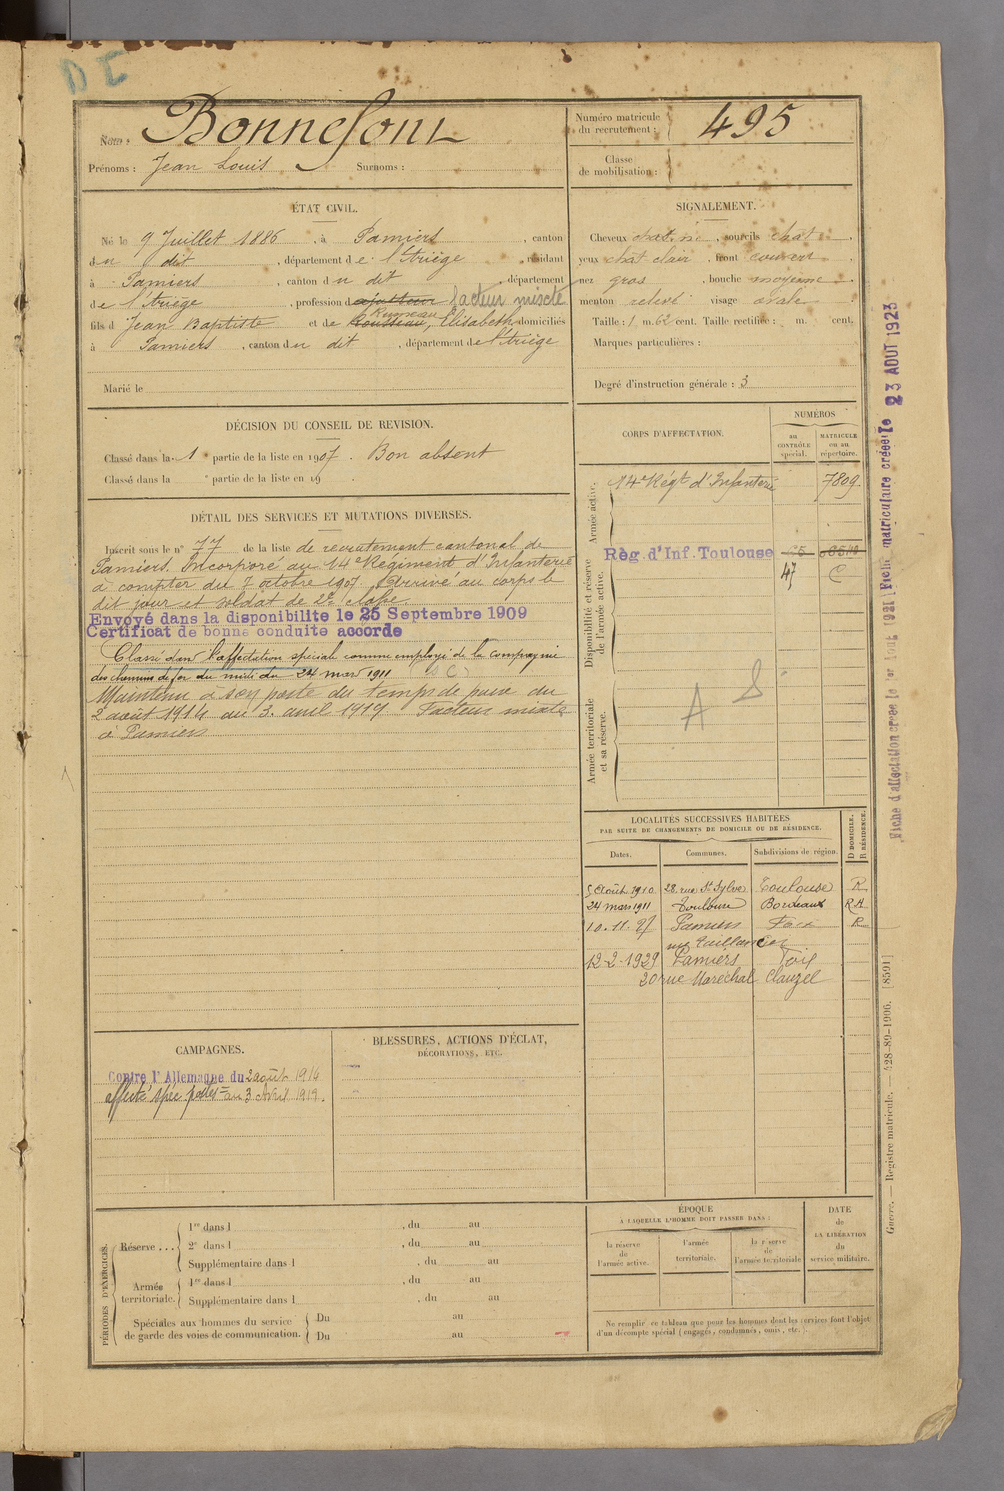 DE
Nom : Bonnefont
Prénoms : Jean Louis Surnoms :
Numéro matricule
du recrutement : 495
Classe
de mobilisation :
ÉTAT CIVIL.
Né le 9 Juillet 1886, à Pamiers, canton
du dit, département de l'Ariège, résidant
à Pamiers, canton du dit, département
de l'Ariège, profession d ajusteur facteur mixte
fils d Jean Baptiste et de Rousseau, Elisabeth domiciliés
à Pamiers, canton du dit, département de l'Ariège
Marié le
SIGNALEMENT.
Cheveux chat. , sourcils chat
yeux chat clair, front couvert,
nez gros, bouche moyenne
menton relevé visage ovale
Taille : 1 m. 62 cent. Taille rectifiée : m. cent.
Marques particulières :
Degré d'instruction générale : 3
DÉCISION DU CONSEIL DE REVISION.
Classé dans la 1 partie de la liste en 1907. Bon absent
Classé dans la partie de la liste en 19 .
DÉTAIL DES SERVICES ET MUTATIONS DIVERSES.
Inscrit sous le n° 77 de la liste de recrutement cantonal de
Pamiers. Incorporé au 14e Régiment d'Infanterie
à compter du 7 octobre 1907. Arrivé au corps le
dit jour et soldat de 2e classe
Envoyé dans la disponibilite le 25 Septembre 1909
Certificat de bonne conduite accorde
Classé dans l'affectation spéciale comme employé de la compagnie
des chemins de fer du midi du 24 mars 1911
Maintenu à son poste du temps de paix du
2 août 1914 au 3 avril 1919 Facteur mixte
à Pamiers
CORPS D'AFFECTATION.
NUMÉROS
au
CONTRÔLE
spécial.
MATRICULE
ou au
répertoire.
Armée active.
14e Régt d'Infanterie 7809
Disponibilité et réserve
de l'armée active.
Règ. d'Inf. Toulouse
47 C
Armée territoriale
et sa réserve.
A S
LOCALITÉS SUCCESSIVES HABITÉES
PAR SUITE DE CHANGEMENTS DE DOMICILE OU DE RÉSIDENCE.
Dates. Communes. Subdivisions de région. D DOMICILE. R RÉSIDENCE.
5 Août 1910 28 rue St Sylve Toulouse R
24 mars 1911 Toulouse Bordeaux R
10.11.27 Pamiers Foix R
12-2-1929 Pamiers Foix
20 rue Maréchal Clauzel
CAMPAGNES.
Contre l'Allemagne du 2 août 1914
affecté spéc. au 3 Avril 1919.
BLESSURES, ACTIONS D'ÉCLAT,
DÉCORATIONS, ETC.
PÉRIODES D'EXERCICES.
Réserve ...
1re dans l , du au
2e dans l , du au
Supplémentaire dans l , du au
Armée
territoriale.
1re dans l , du au
Supplémentaire dans l , du au
Spéciales aux hommes du service
de garde des voies de communication.
Du au
Du au
ÉPOQUE
À LAQUELLE L'HOMME DOIT PASSER DANS :
la réserve
de
l'armée active.
l'armée
territoriale.
la réserve
de
l'armée territoriale
DATE
de
LA LIBÉRATION
du
service militaire.
Ne remplir ce tableau que pour les hommes dont les services font l'objet
d'un décompte spécial (engagés, condamnés, omis, etc.)
Fiche matriculaire créée le 23 AOUT 1923
Fiche d'affectation créée le 1er Août 1931
Guerre. — Registre matricule. — 428-89-1906. [8591]